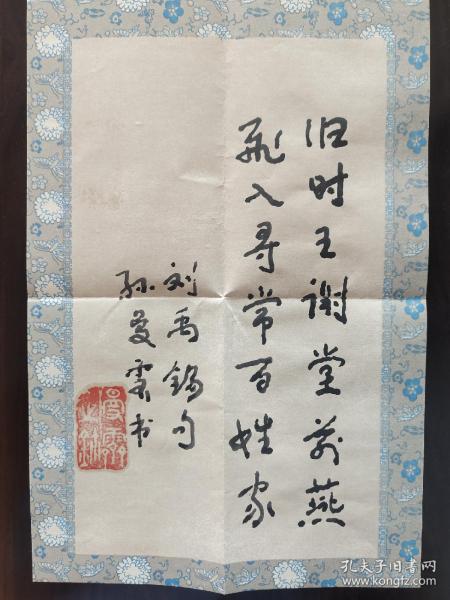 旧时王谢堂前燕
飞入寻常百姓家
刘禹锡句
孙曼霖书
孔夫子旧书网
www.kongfz.com